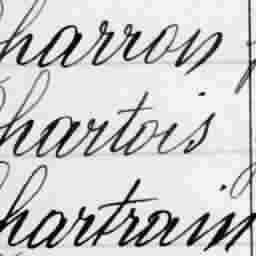 Charron
Chartois
Chartrain